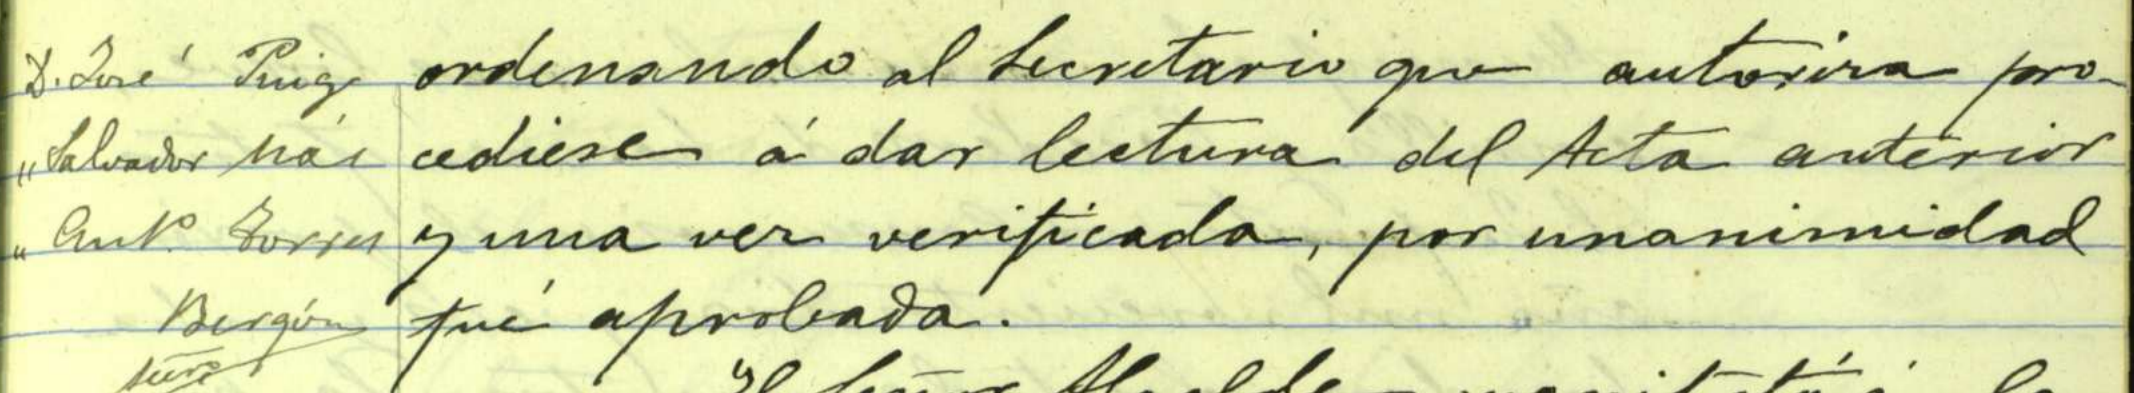 D. José Puig
„ Salvador Más
„ Ant.º Torres
Bergós
ordenando al Secretario que autoriza pro-
cediese á dar lectura del Acta anterior
y una vez verificada, por unanimidad
fué aprobada.
El Señor Alcalde manifestó á lo